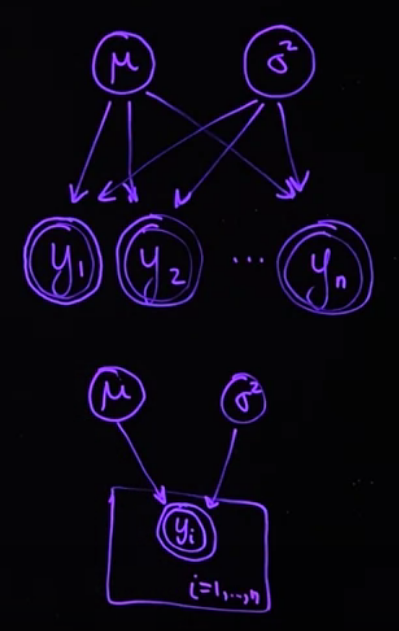 μ σ²
y₁ y₂ ... yₙ
μ σ²
yᵢ
i=1,...,n